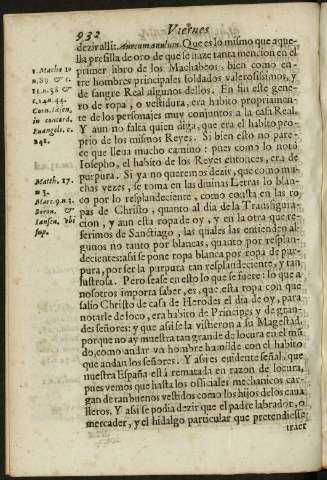 932
Viernes
dezir allì: Aureum annulum. Que es lo mismo que aque-
lla presilla de oro de que se haze tanta mencion en el
primer libro de los Machabeos, bien como en-
tre hombres principales soldados valerosissimos, y
de sangre Real algunos dellos. En fin este gene-
ro de ropa, o vestidura, era habito propriamen-
te de los personajes muy conjuntos a la casa Real.
Y aun no falta quien diga, que era el habito pro-
prio de los mismos Reyes. Si bien esto no pare-
ce que lleua mucho camino: pues como lo notò
Iosepho, el habito de los Reyes entonces, era de
purpura. Si ya no queremos dezir, que como mu-
chas vezes, se toma en las diuinas Letras lo blan-
co por lo resplandeciente, como consta en las ro
pas de Christo, quanto al dia de la Transfigura-
cion, y aun esta ropa de oy, y en la otra que re-
ferimos de Sanctiago, las quales las entienden al-
gunos no tanto por blancas, quanto por resplan-
decientes: assi se pone ropa blanca por ropa de pur-
pura, por ser la purpura tan resplandeciente, y tan
lustrosa. Pero sease en esto lo que se fuere: lo que a
nosotros importa saber, es, que esta ropa con que
salio Christo de casa de Herodes el dia de oy, para
notarle de loco, era habito de Principes y de gran-
des señores: y que assi se la vistieron a su Magestad,
porque no ay muestra tan grande de locura en el mū
do, como andar vn hombre humilde con el habito
que andan los señores. Y assi es euidente señal, que
nuestra España està rematada en razon de locura,
pues vemos que hasta los officiales mechanicos car-
gan de tan buenos vestidos como los hijos de los caua
lleros. Y assi se podia dezir que el padre labrador, o
mercader, y el hidalgo particular que pretendiesse
traer
1. Macha 10
n. 89. & c.
11. n. 58 &
c. 14. n. 44.
Corn. Iāsen.
in concord.
Euangelic. c.
Matth. 17.
n. 2.
Marc. 9. n. 3.
Baron. &
Iansen. vbi
sup.